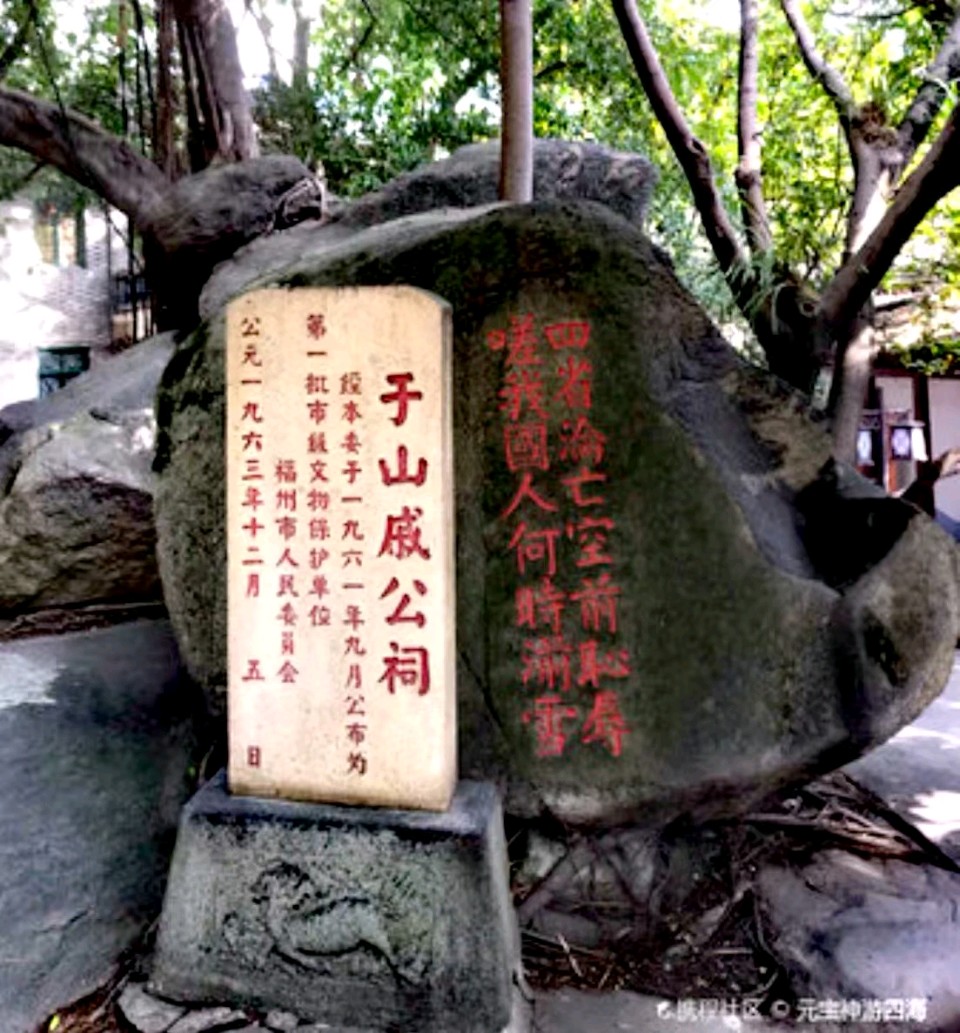 四省淪亡空前恥辱
嗟我國人何時湔雪
于山戚公祠
經本委于一九六一年九月公布为
第一批市級文物保护单位
福州市人民委員会
公元一九六三年十二月 五 日
携程社区 © 元宝神游四海